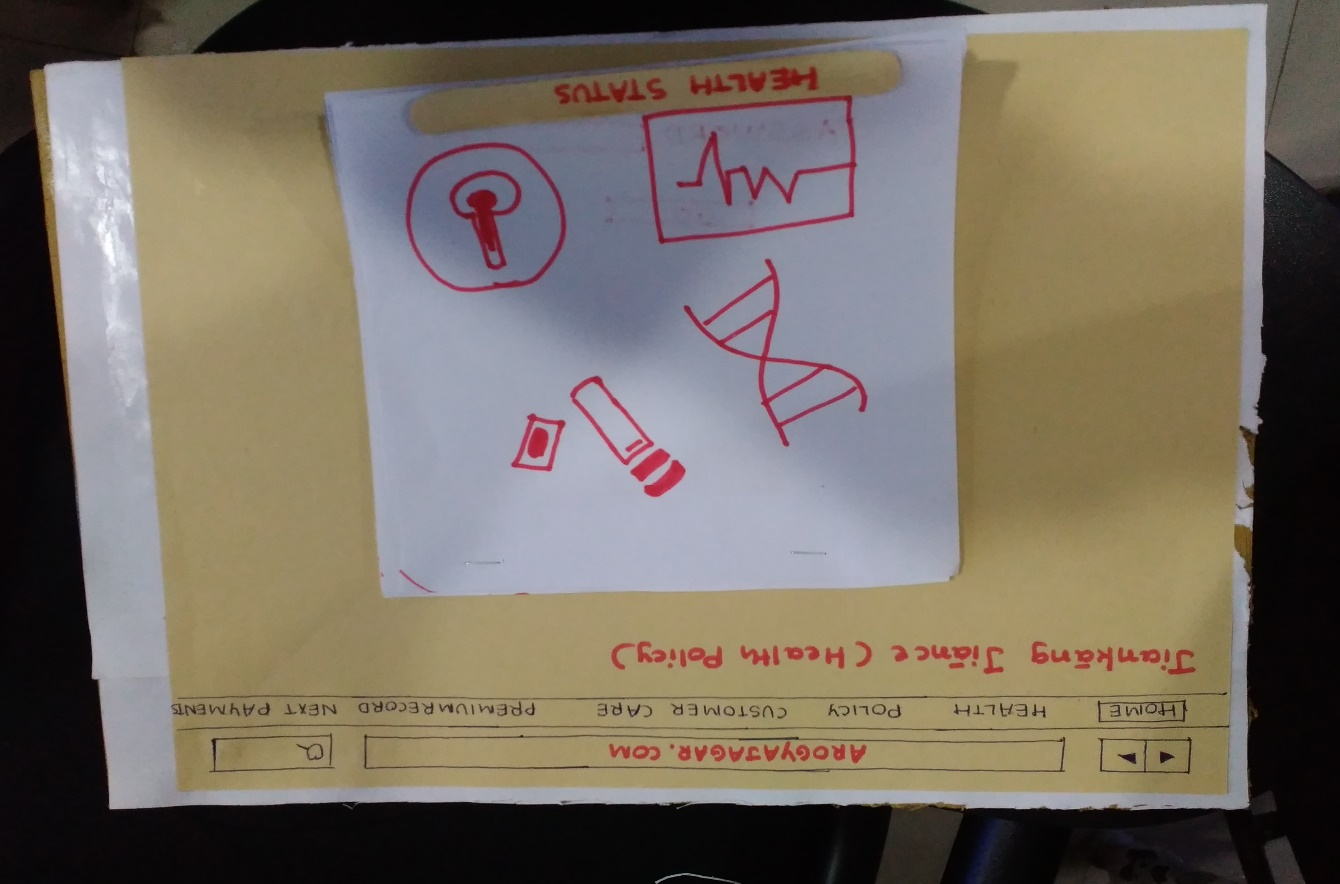 AROGYAJAGAR.COM
HOME HEALTH POLICY CUSTOMER CARE PREMIUM RECORD NEXT PAYMENTS
Jiankāng Jiānce (Health Policy)
HEALTH STATUS